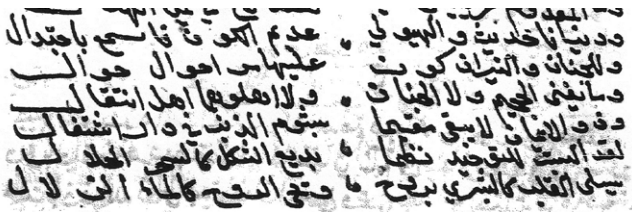 ودنيانا حديث والهيولي عديم الكون فاسمع باجتدال
وللجنان والنيران كون عليها مر احوال خوال
وما يفنى الجحيم ولا الجنان ولا اهلوهما اهل انتقال
وذو الايمان لا يبقى مقيما بشوم الذنب في دار اشتعال
لقد البست للتوحيد نظما بديع الشكل كالسحر الحلال
يسلي القلب كالبشري بروح ويحي الروح كالماء الزلال